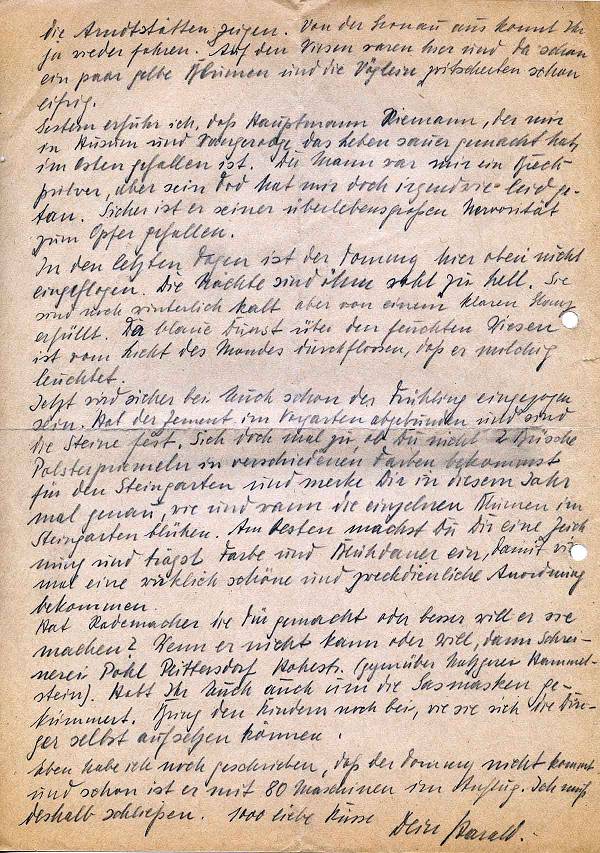 die Arndtstätten zeigen. Von der Kronau aus könnt Ihr
ja wieder fahren. Auf den Wiesen waren hier und da schon
ein paar gelbe Blumen und die Vöglein zwitscherten schon
eifrig.
Gestern erfuhr ich, daß Hauptmann Niemann, der mir
in Husum und Wangerooge das Leben sauer gemacht hat,
im Osten gefallen ist. Der Mann war mir ein Brech-
pulver, aber sein Tod hat mir doch irgendwie leid ge-
tan. Sicher ist er seiner überlebensgroßen Nervosität
zum Opfer gefallen.
In den letzten Tagen ist der Tommy hier oben nicht
eingeflogen. Die Nächte sind ihm wohl zu hell. Sie
sind noch winterlich kalt aber von einem klaren
erfüllt. Der blaue Dunst über den feuchten Wiesen
ist vom Licht des Mondes durchflossen, daß er milchig
leuchtet.
Jetzt wird sicher bei Euch schon der Frühling eingezogen
sein. Hat der Zement im Vorgarten abgebunden und sind
die Steine fest. Sieh doch mal zu ob Du nicht 2 Büsche
Polsterprimeln in verschiedenen Farben bekommst
für den Steingarten und merke Dir in diesem Jahr
mal genau, wie und wann die einzelnen Blumen im
Steingarten blühen. Am besten machst Du Dir eine Zeich
nung und trägst Farbe und Blühdauer ein, damit wir
mal eine wirklich schöne und zweckdienliche Anordnung
bekommen.
Hat Rademacher die Tür gemacht oder besser will er sie
machen? Wenn er nicht kann oder will, dann Schrei-
nerei Pohl Rittersdorf Hohestr. (gegenüber Metzgerei Hammel-
stein). Habt Ihr Euch auch um die Gasmasken ge-
kümmert. Bring den Kindern noch bei, wie sie sich die Din-
ger selbst aufsetzen können.
Eben habe ich noch geschrieben, daß der Tommy nicht kommt
und schon ist er mit 80 Maschinen im Anflug. Ich muß
deshalb schließen. 1000 liebe Küsse
Dein Harald.